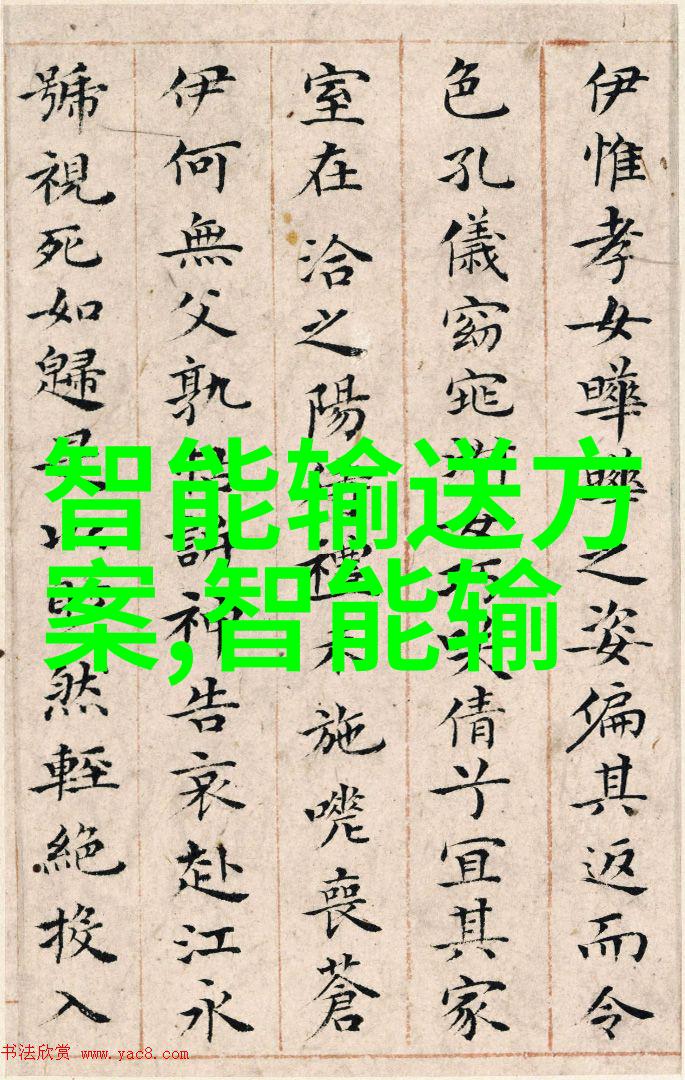 伊惟孝女曄曄之姿偏其返而令
色孔儀窈窕女笑倩兮宜其家
室在洽之陽禮未施嗟喪蒼
伊何無父孰訴神告哀赴江永
號視死如歸然輕絕投入
智能输送方
案,智能输
书法欣赏 www.yac8.com